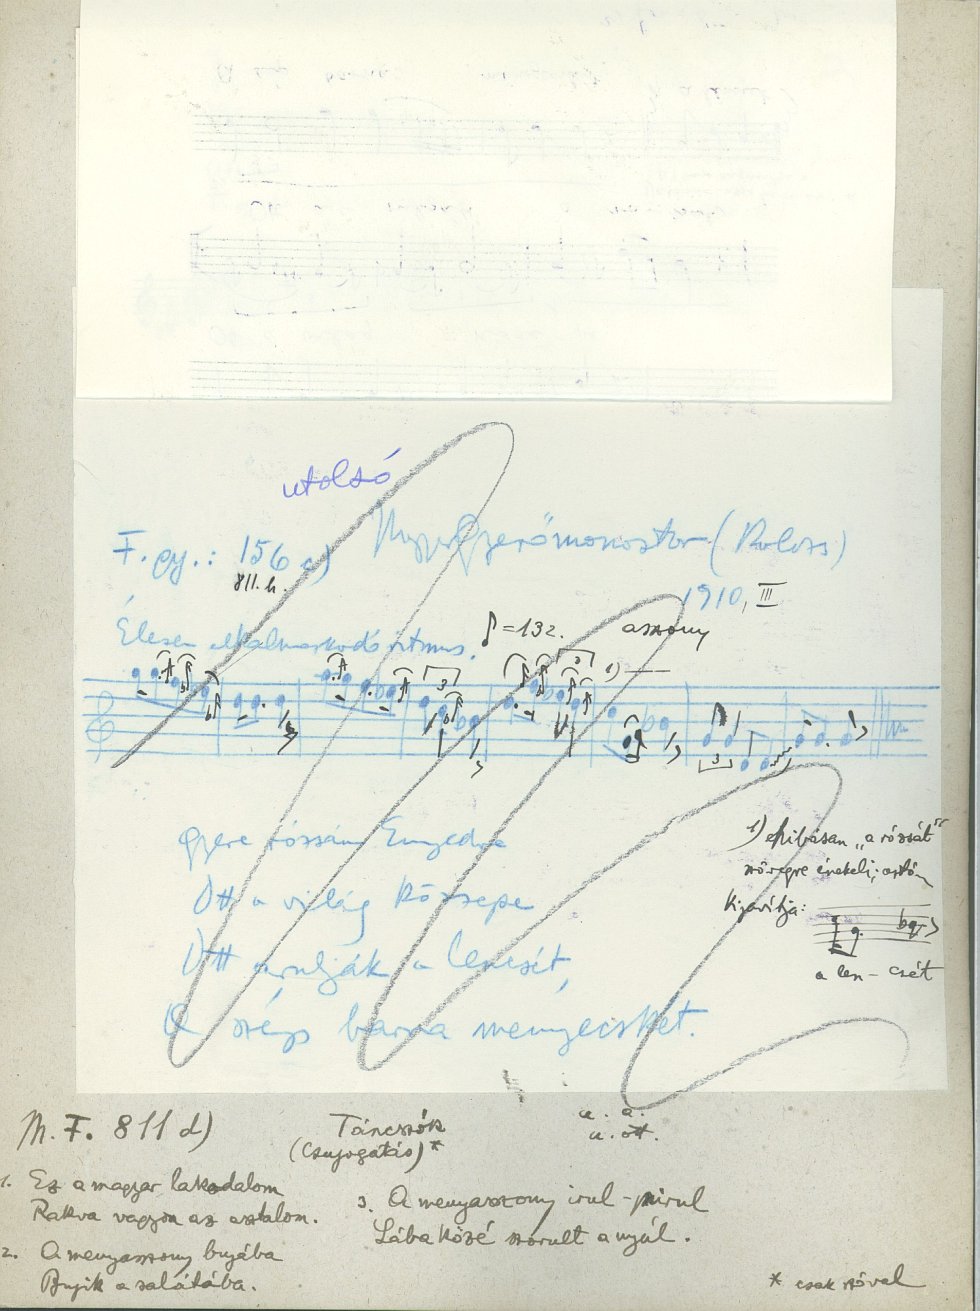 utolsó
F. gy.: 156 c)
Magyargyerőmonostor (Kolozs)
811. h.
1910, III
Élesen alkalmazkodó ritmus.
♪=132.
asszony
1)
3
3
3
Gyere rózsám Enyedre
Ott a világ közepe
Ott árulják a lencsét,
A szép barna menyecskét.
1) hibásan „a rózsát"
szövegre énekli; aztán
kijavítja:
a len - csét
M. F. 811 d)
Táncszók
(Csujogatás)*
u. a.
u. ott.
1. Ez a magyar lakodalom
Rakva vagyon az asztalom.
2. A menyasszony bujába
Bujik a salátába.
3. A menyasszony irul-pirul
Lába közé szorult a nyúl.
* csak szóval